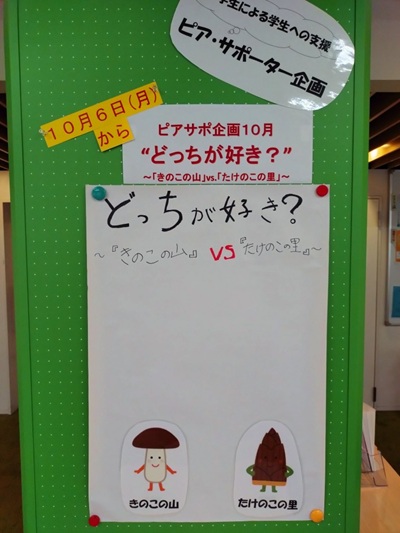 学生による学生への支援
ピア・サポーター企画
10月6日(月)
から
ピアサポ企画10月
“どっちが好き？”
～「きのこの山」vs.「たけのこの里」～
どっちが好き?
～『きのこの山』 VS 『たけのこの里』～
きのこの山
たけのこの里